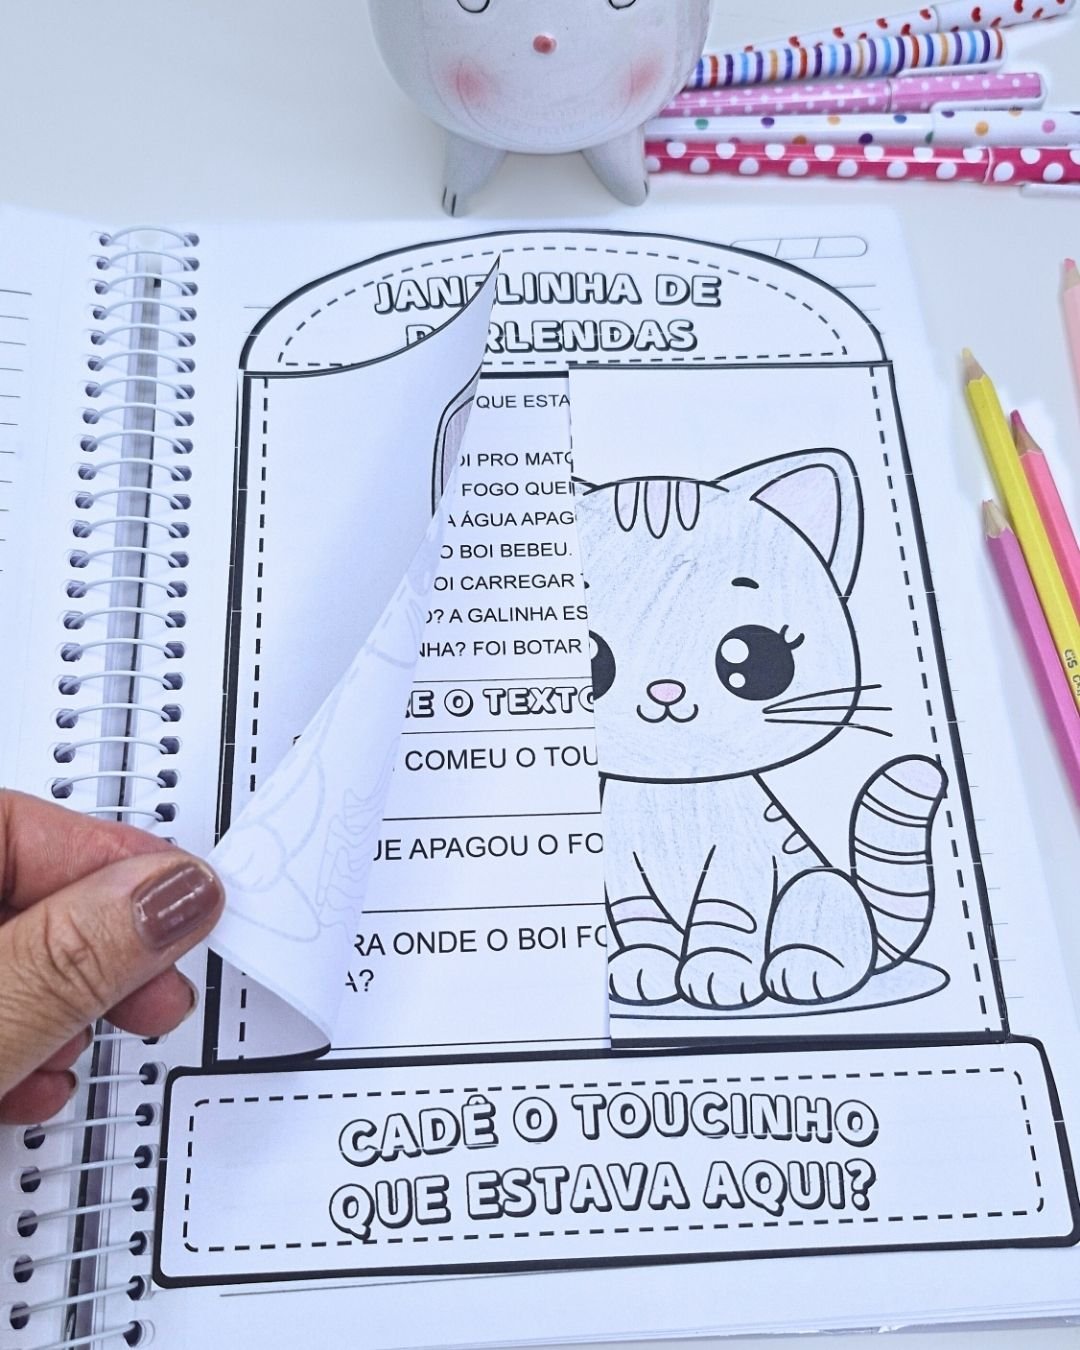 JANELINHA DE
PARLENDAS
QUE ESTA
OI PRO MATO
FOGO QUEI
A ÁGUA APAGO
O BOI BEBEU.
OI CARREGAR
O? A GALINHA ES
NHA? FOI BOTAR
E O TEXTO
COMEU O TOU
UE APAGOU O FO
RA ONDE O BOI FO
A?
CADÊ O TOUCINHO
QUE ESTAVA AQUI?